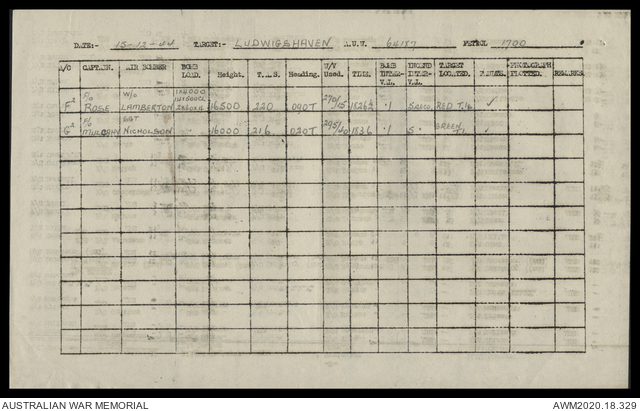 DATE:- 15-12-44 TARGET:- LUDWIGSHAVEN A.U.W. 64187 PETROL 1700
A/C CAPTAIN. AIR BOMBER BOMB LOAD. Height. T.A.S. Heading. W/V Used. TIME. BOMB INTER-VAL. INCEND INTER-VAL. TARGET LOCATED. PHOTOGRAPH PLOTTED. REMARKS.
F² P/O ROSE W/O LAMBERTON 1x4000 16500 220 090T 270/15 1826½ .1 RED T.I's ✓
G² P/O MULCAHY SGT NICHOLSON 16000 216 020T 295/40 1836 .1 5. GREEN T.I. ✓
AUSTRALIAN WAR MEMORIAL AWM2020.18.329